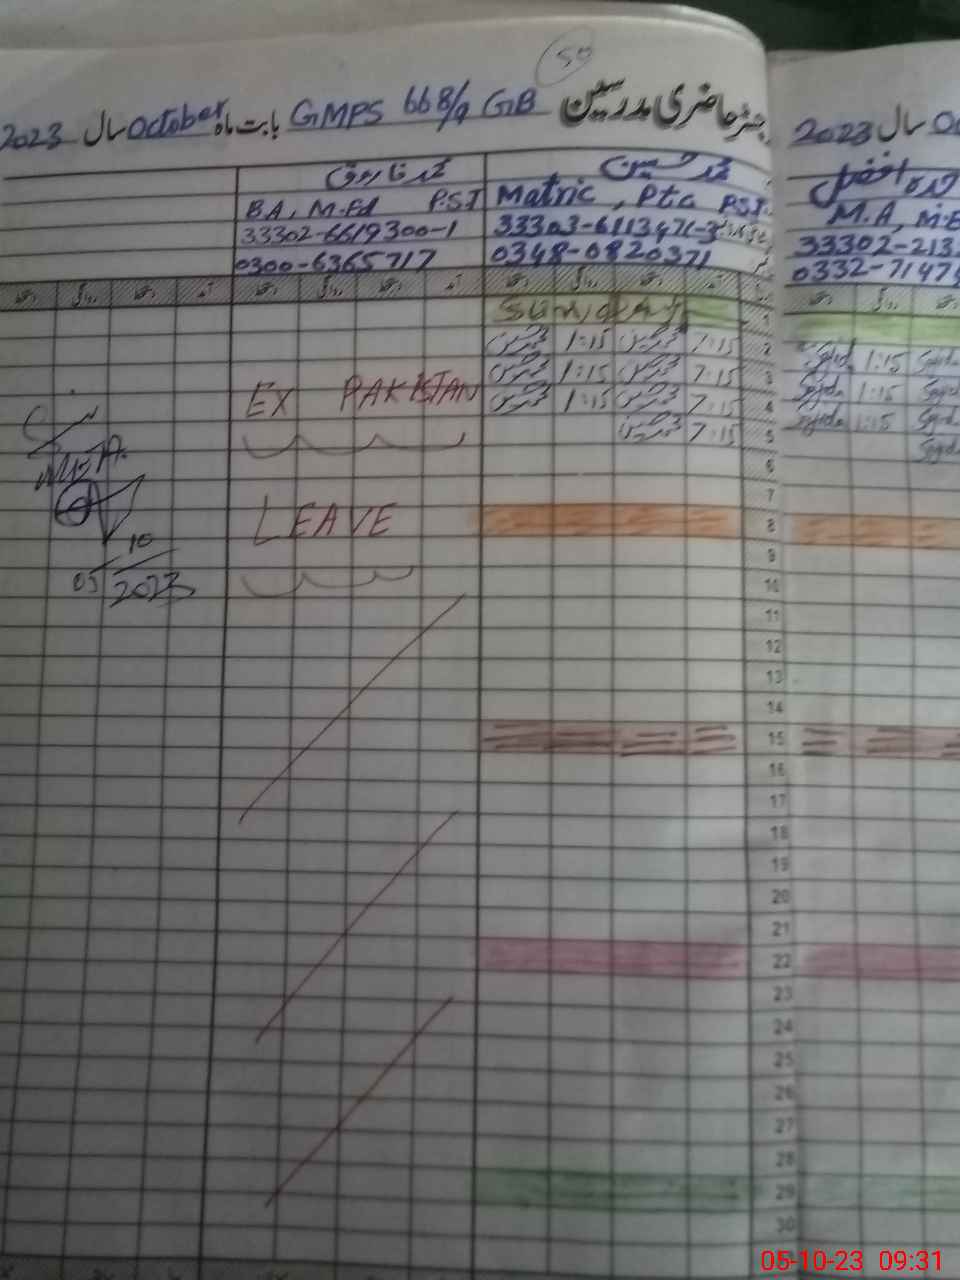 50
رجسٹر حاضری مدرسین GMPS 668/9 GB بابت ماہ October سال 2023
سال 2023
محمد حسین
Matric, Ptc PST
33303-6113471-3
0348-0820371
محمد فاروق
BA, M.Ed PST
33302-6619300-1
0300-6365717
افضل
M.A, M.E
33302-213
0332-7147
آمد دستخط روانگی دستخط آمد دستخط روانگی دستخط آمد دستخط روانگی دستخط
Sunday
1
7:15 محمد حسین 1:15 محمد حسین
2
7:15 محمد حسین 1:15 محمد حسین
3
7:15 محمد حسین 1:15 محمد حسین
4
7:15 محمد حسین
5
1:15
1:15
1:15
EX PAKISTAN
LEAVE
05/10/2023
6
7
8
9
10
11
12
13
14
15
16
17
18
19
20
21
22
23
24
25
26
27
28
29
30
05-10-23 09:31